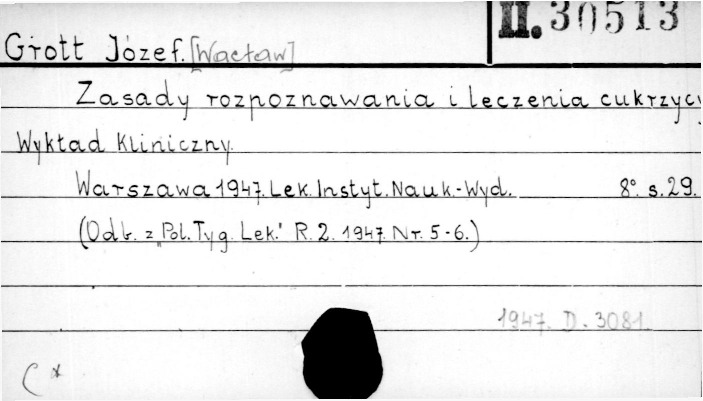 II. 30513
Grott Józef. [Wacław]
Zasady rozpoznawania i leczenia cukrzycy
Wykład Kliniczny.
Warszawa 1947. Lek. Instyt. Nauk.-Wyd. 8°. s. 29.
(Odb. z „Pol. Tyg. Lek." R. 2. 1947. Nr. 5-6.)
1947. D. 3081.
C *